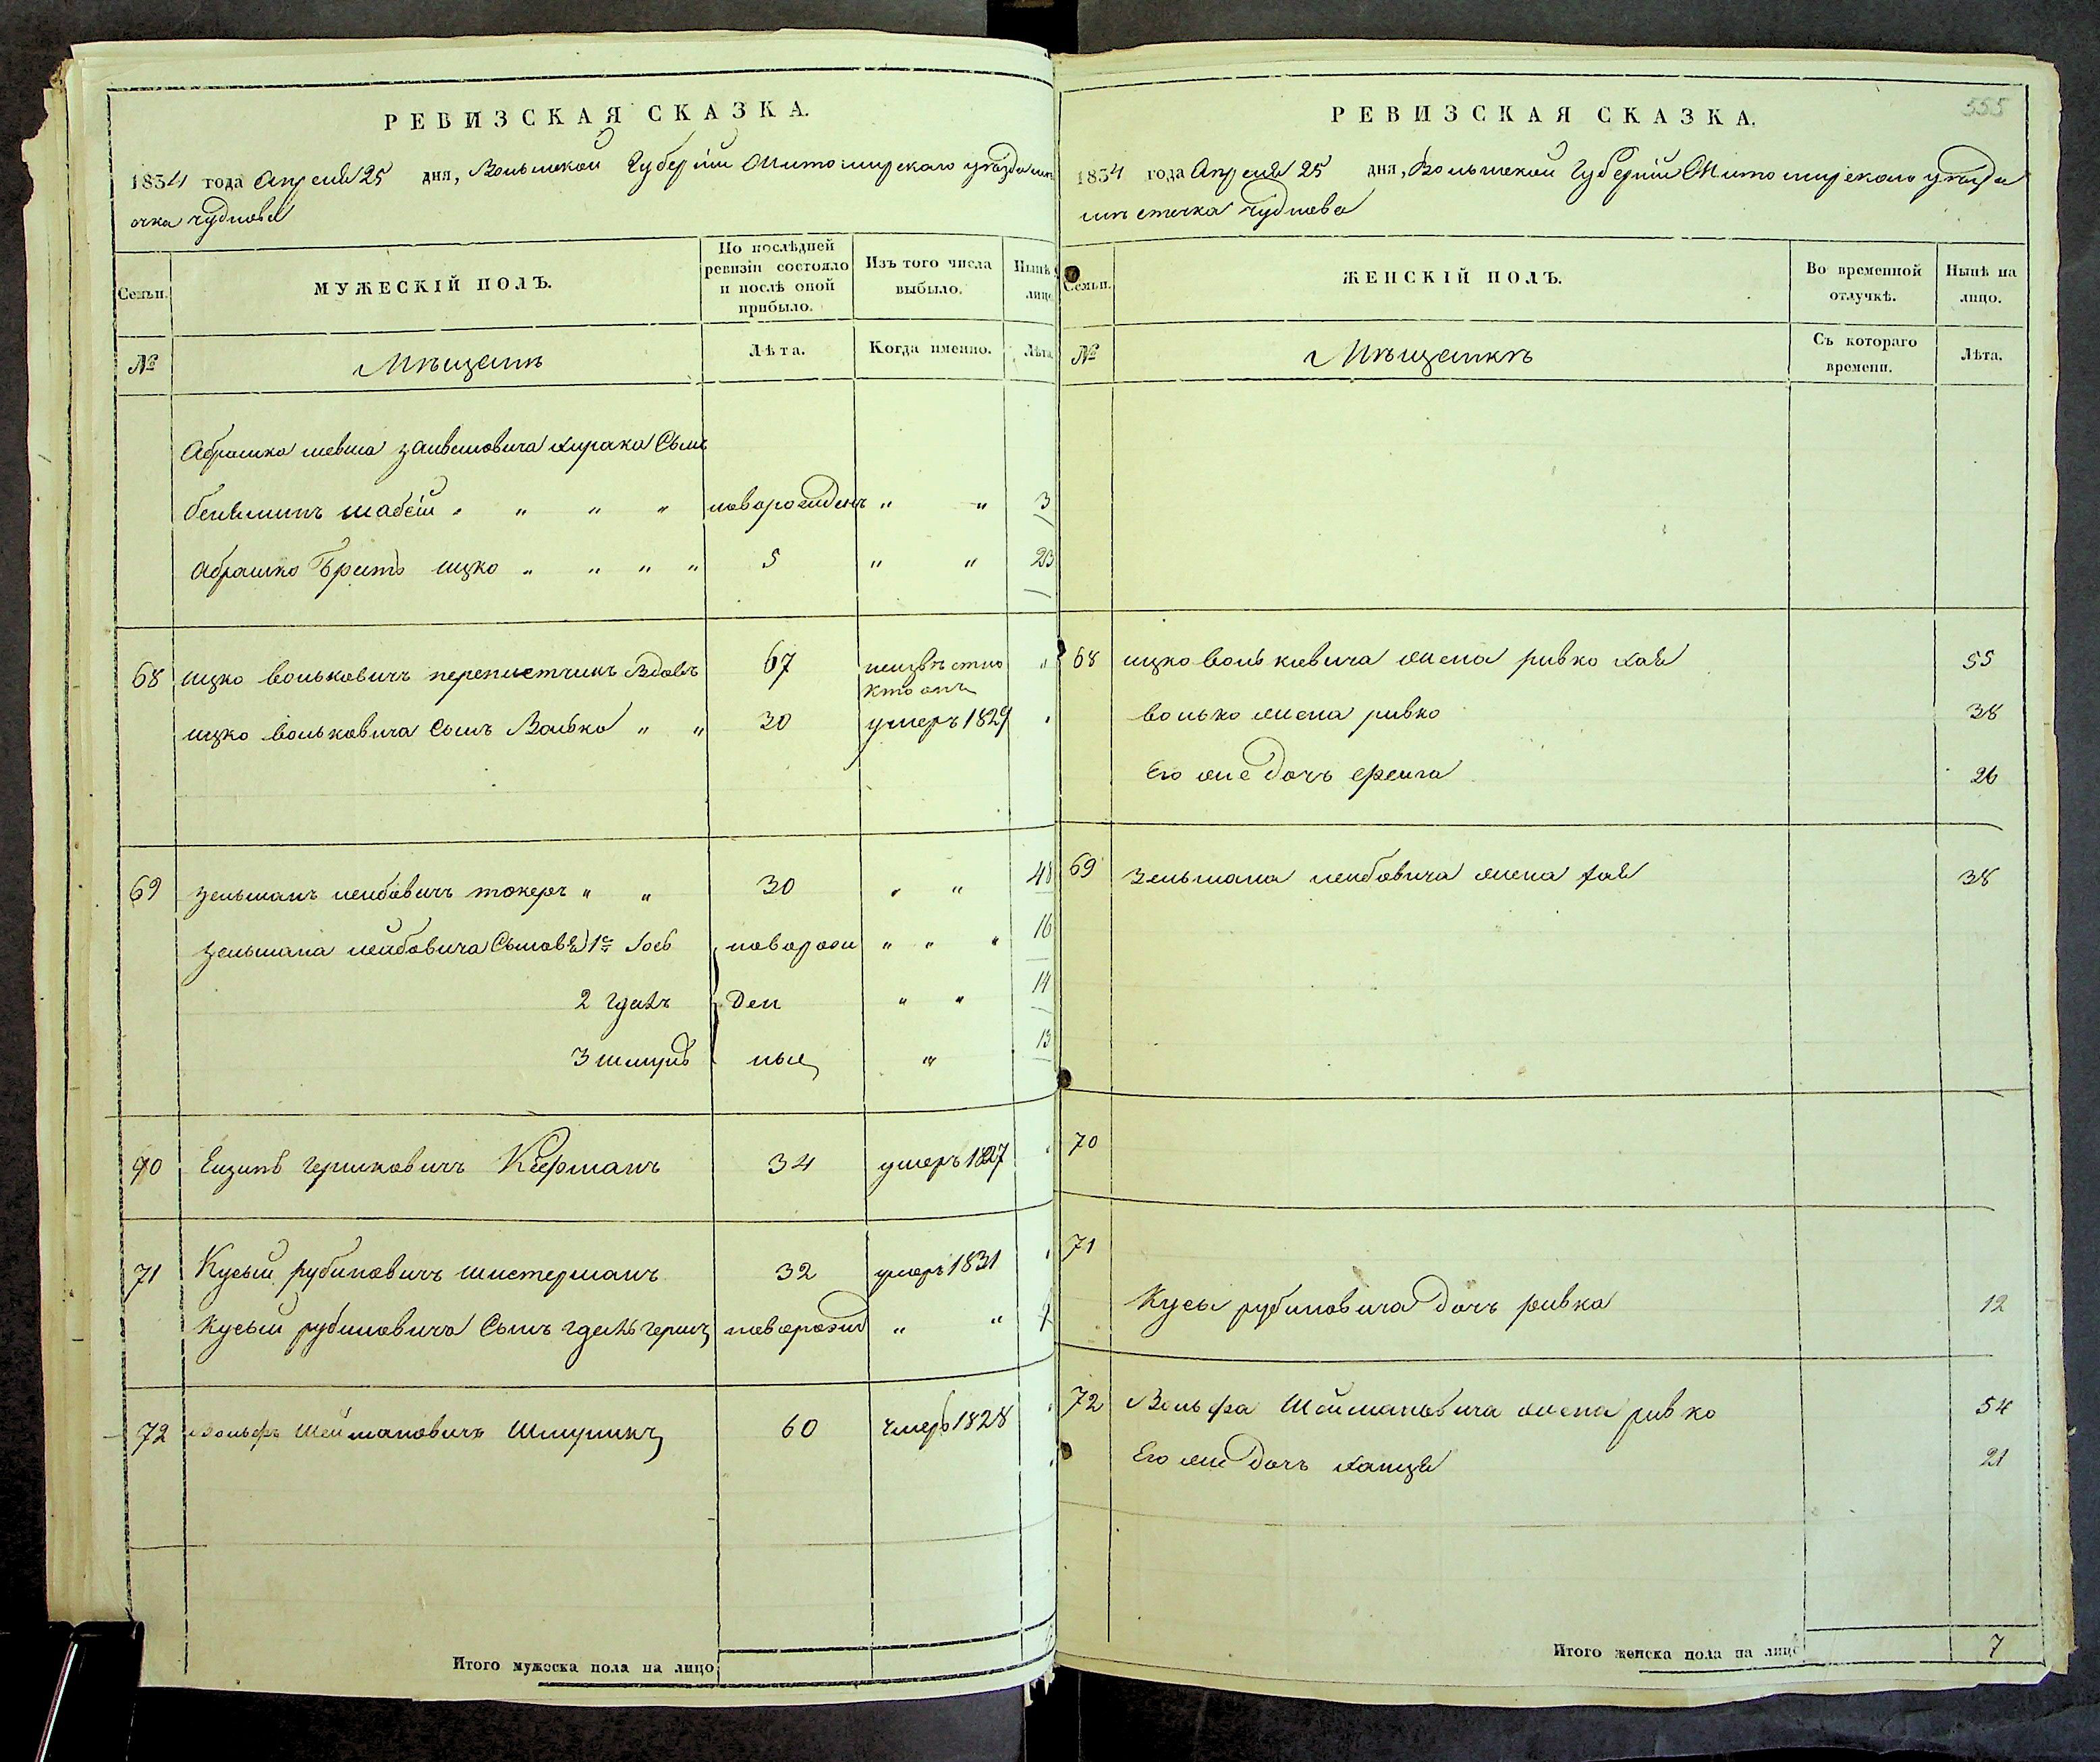 РЕВИЗСКАЯ СКАЗКА.
1834 года Апреля 25 дня, Волынской Губерніи Житомирскаго уѣзда мѣст
очка Чуднова
Семьи.
МУЖЕСКІЙ ПОЛЪ.
По послѣдней ревизіи состояло и послѣ оной прибыло.
Изъ того числа выбыло.
Нынѣ лицо
№
Мѣщанъ
Лѣта.
Когда именно.
Лѣта
Абрашка шевша Сынъ
шабсій " " " " новорожденъ " " 3
Абрашко Братъ ицко " " " " 5 " " 23
68 ицко вольковичъ Вдовъ 67 неизвѣстно "
кто онъ
ицко вольковича Сынъ Волько " " 30 умеръ 1829 "
69 зельманъ лейбовичъ токеръ " " 30 " " 48
зельмана лейбовича Сыновья 1й Іось новорож " " " 16
2 гдаль ден " " 14
3 шмуль ные " 13
70 гершковичъ 34 умеръ 1827 "
71 Кусый рубиновичъ шистерманъ 32 умеръ 1831 "
Кусыя рубиновича Сынъ гдаль герш новорожд " "
72 Вольфъ Шеймановичъ 60 Умеръ 1828 "
Итого мужеска пола на лицо
555
РЕВИЗСКАЯ СКАЗКА.
1834 года Апреля 25 дня, Волынской Губерніи Житомирскаго уѣзда
мѣстечка Чуднова
Семьи.
ЖЕНСКІЙ ПОЛЪ.
Во временной отлучкѣ.
Нынѣ на лицо.
№
Мѣщанкъ
Съ котораго времени.
Лѣта.
68 ицко вольковича жена ривко хая 55
волько жена ривко 38
Его же дочь фейга 26
69 зельмана лейбовича жена хая 38
70
71
Кусы рубиновича дочь ривка 12
72 Вольфа Шеймановича жена ривко 54
Его же дочь 21
Итого женска пола на лицо 7